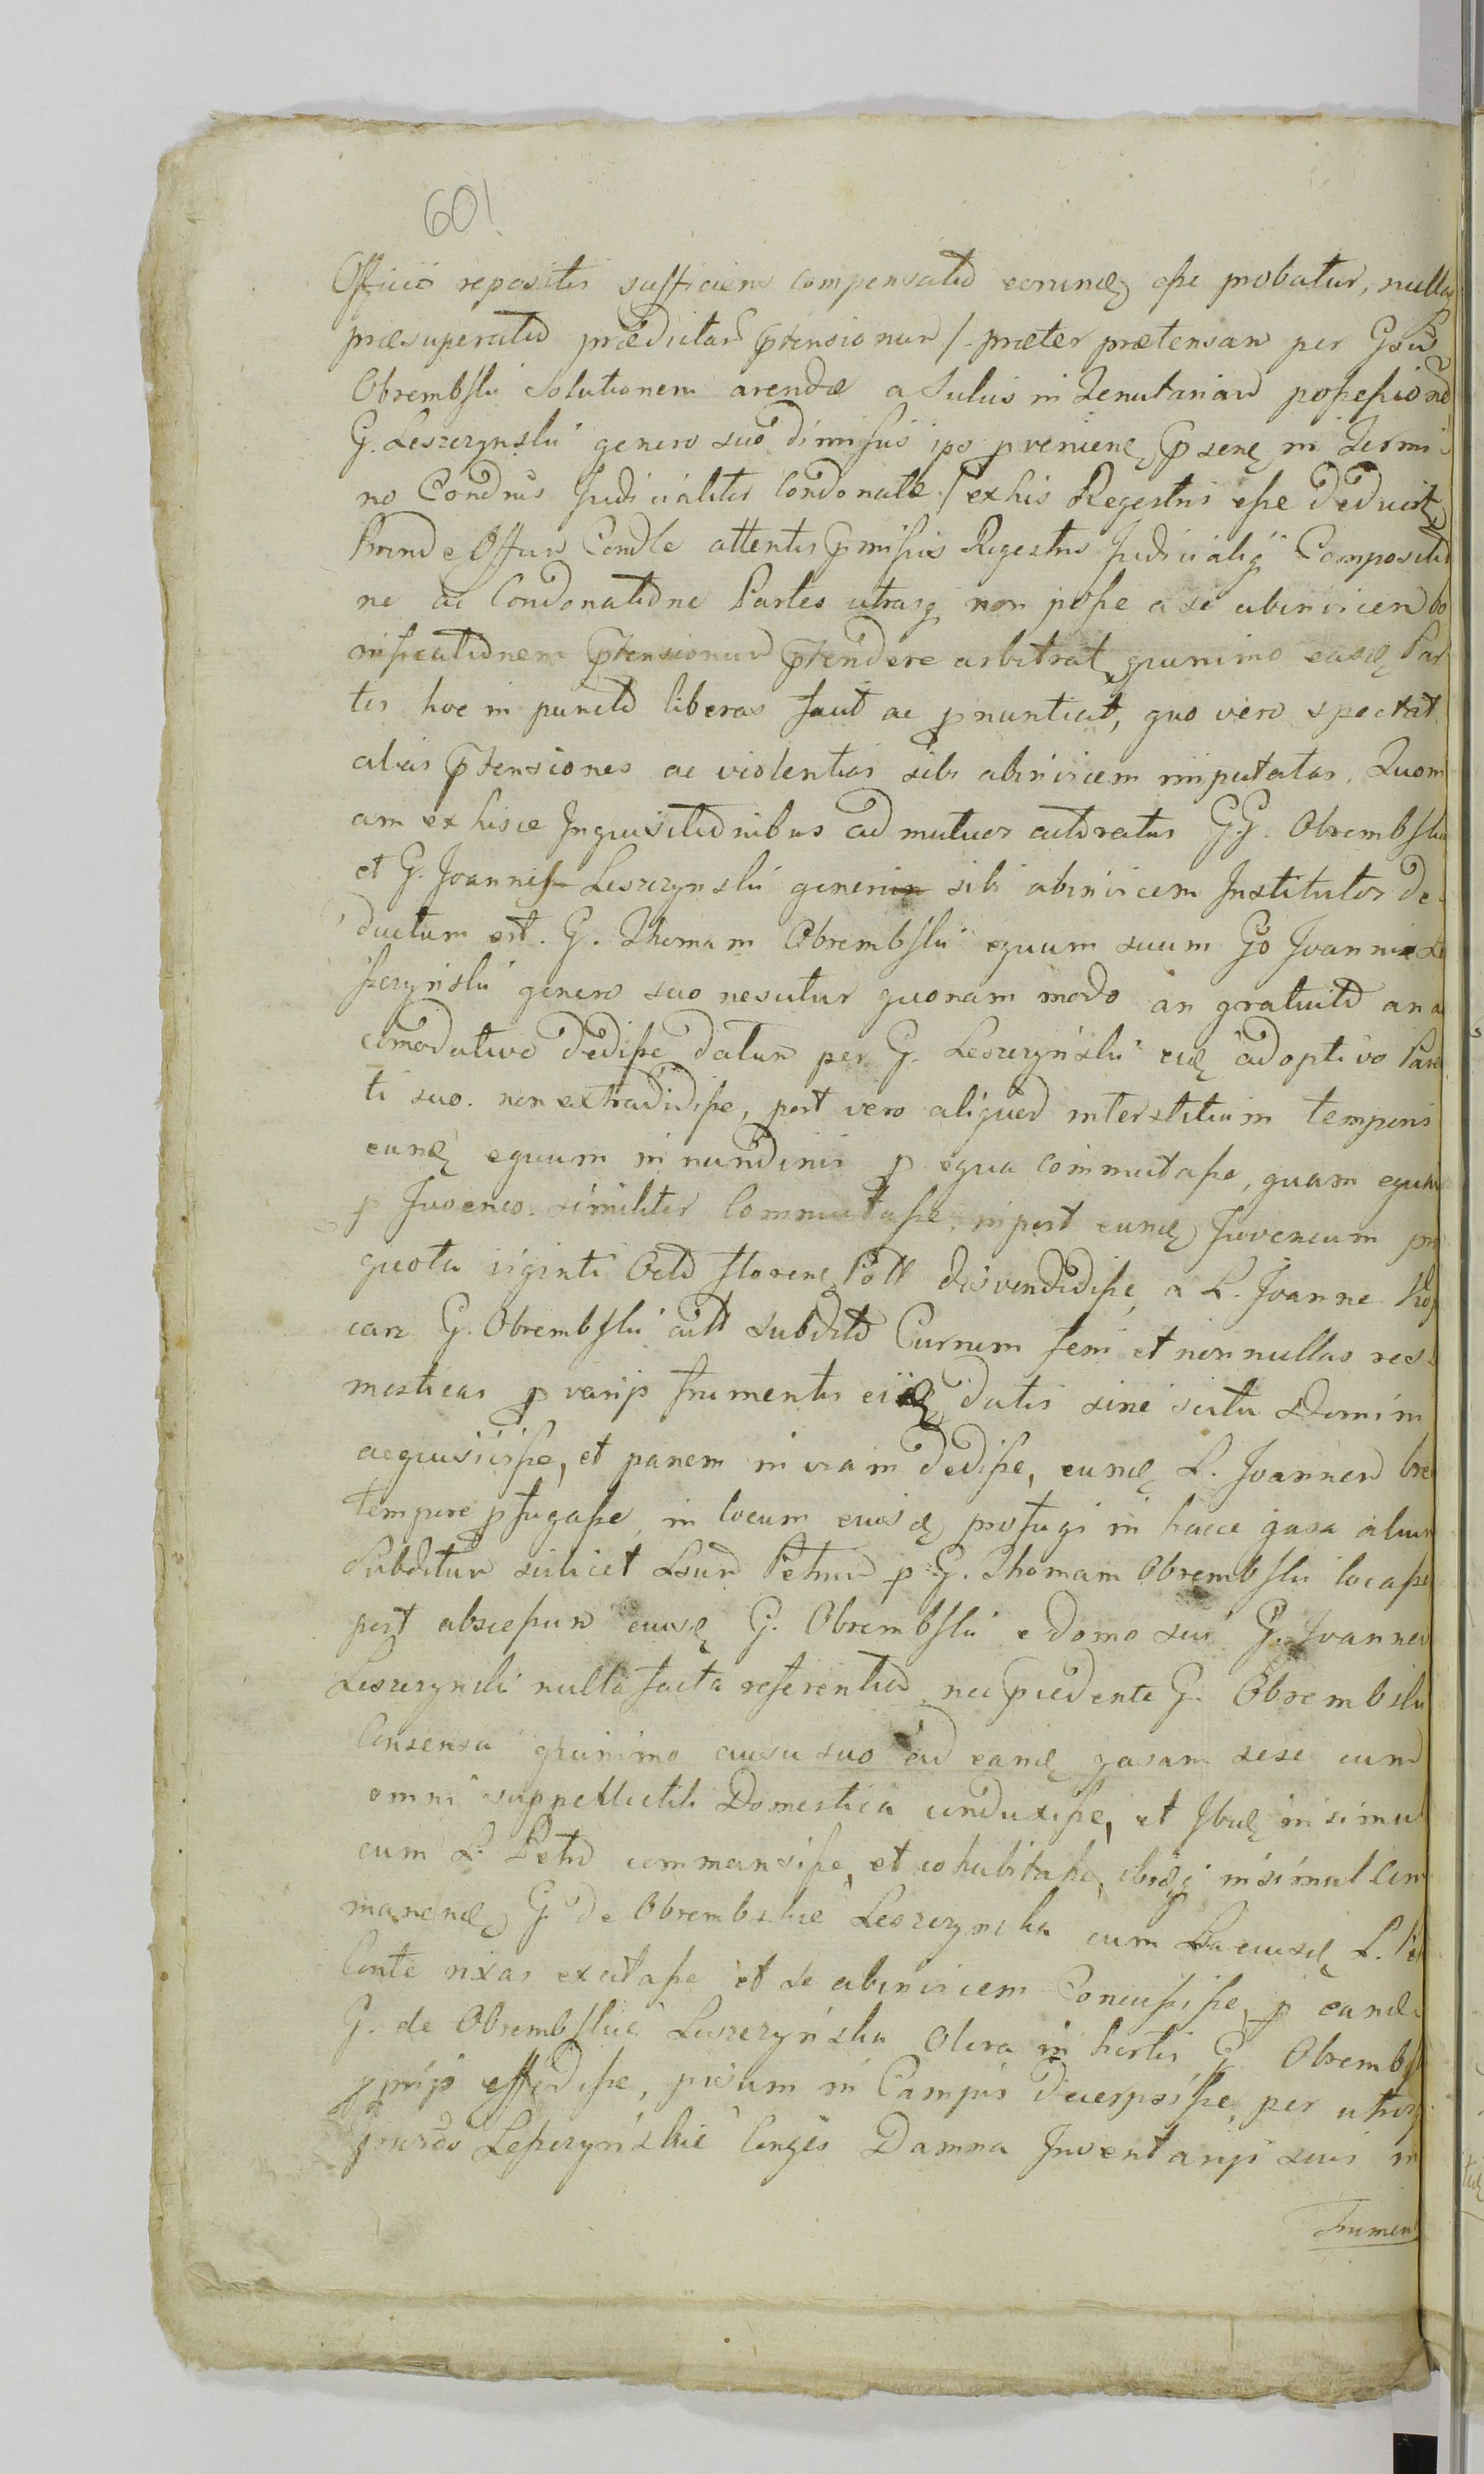 601
Officio repositis sufficiens compensatio earumdę esse probatur, nulla
præsuperatio prædictar ptensionum /. præter prætensam per Gsū
Obrembski solutionem arendæ a Suluis in Tenutariam possessione
G. Leszczynski genero suo dimissis ipo provenienę psenę in Termi
no Condnis Judicialiter Condonatæ ./ ex his Regestris esse deducit
Proinde Offum Condle attentis pmissis Regestris Judicialiq Compositio
ne ac Condonatione Partes utrasq non posse a se abinvicem bo
nificationem ptensionum ptendere arbitrat quinimo easdę Par
tes hoc in puncto liberas facit ac pnuntiat, quo vero spectat
alias ptensiones ac violentias sibi abinvicem imputatas. Quoni
am ex hisce Inquisitionibus ad mutuos citoratus G.G. Obrembski
et G. Joannis Leszczynski generi sibi abinvicem Institutos de
ductum est. G. Thomam Obrembski equum suum Go Joanni Le
szczynski genero suo nescitur quonam modo an gratuito an a
comodative dedisse datum per G. Leszczynski eidę adoptivo Paren
ti suo. non extradidisse, post vero aliquod interstitium temporis
eundę equum in nundinis p equa commutasse, quam equam
p Juvenco. similiter Commutasse, inpost eundę Juvencum pro
quota viginti Octo florenę Poll divendidisse, a L. Joanne
G. Obrembski aut subdito Currum feni et nonnullas res
mesticas p varijs frumentis eidę datis sine scitu Domini
acquisivisse, et panem in viam dedisse, eundę L. Joannem bre
tempore pfugasse, in locum eiusdę profugi in hacce gasa alium
Subditum scilicet Lsum Petrum p G. Thomam Obrembski locasse
post abscessum eiusdę G. Obrembski e domo sui G. Joannem
Leszczynski nulla facta referentia nec pcedente G. Obrembski
Consensu quinimo ausu suo ad eandę gasam sese cum
omni suppellectili Domestica conduxisse, et Ibidę insimul
cum L. Petro commansisse, et cohabitasse, ibidęq insimul Com
manendę G. de Obrembskie Leszczynska cum La eiusdę L. Pet
Conte rixas excitasse et se abinvicem Concussisse, p eandę
G. de Obrembskie Leszczynska Olera in hortis G. Obremb
effodisse, pisum in Campis decerpsisse, per utros
Leszczynskie Conges Damna Inventarijs suis in
Frumen